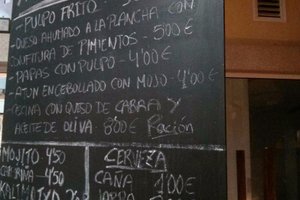 - PULPO FRITO
- QUESO AHUMADO A LA PLANCHA CON
CONFITURA DE PIMIENTOS - 5'00€
- PAPAS CON PULPO - 4'00€
- ATÚN ENCEBOLLADO CON MOJO - 4'00€
CON QUESO DE CABRA Y
ACEITE DE OLIVA 8'00€ Ración
MOJITO 4'50
4'50
CERVEZA
CAÑA 1'00€
JARRA